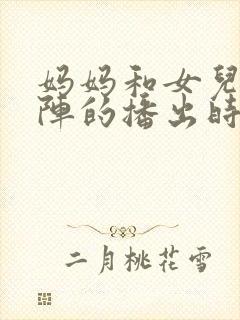 妈妈和女兒
陣的播出時
二月桃花雪